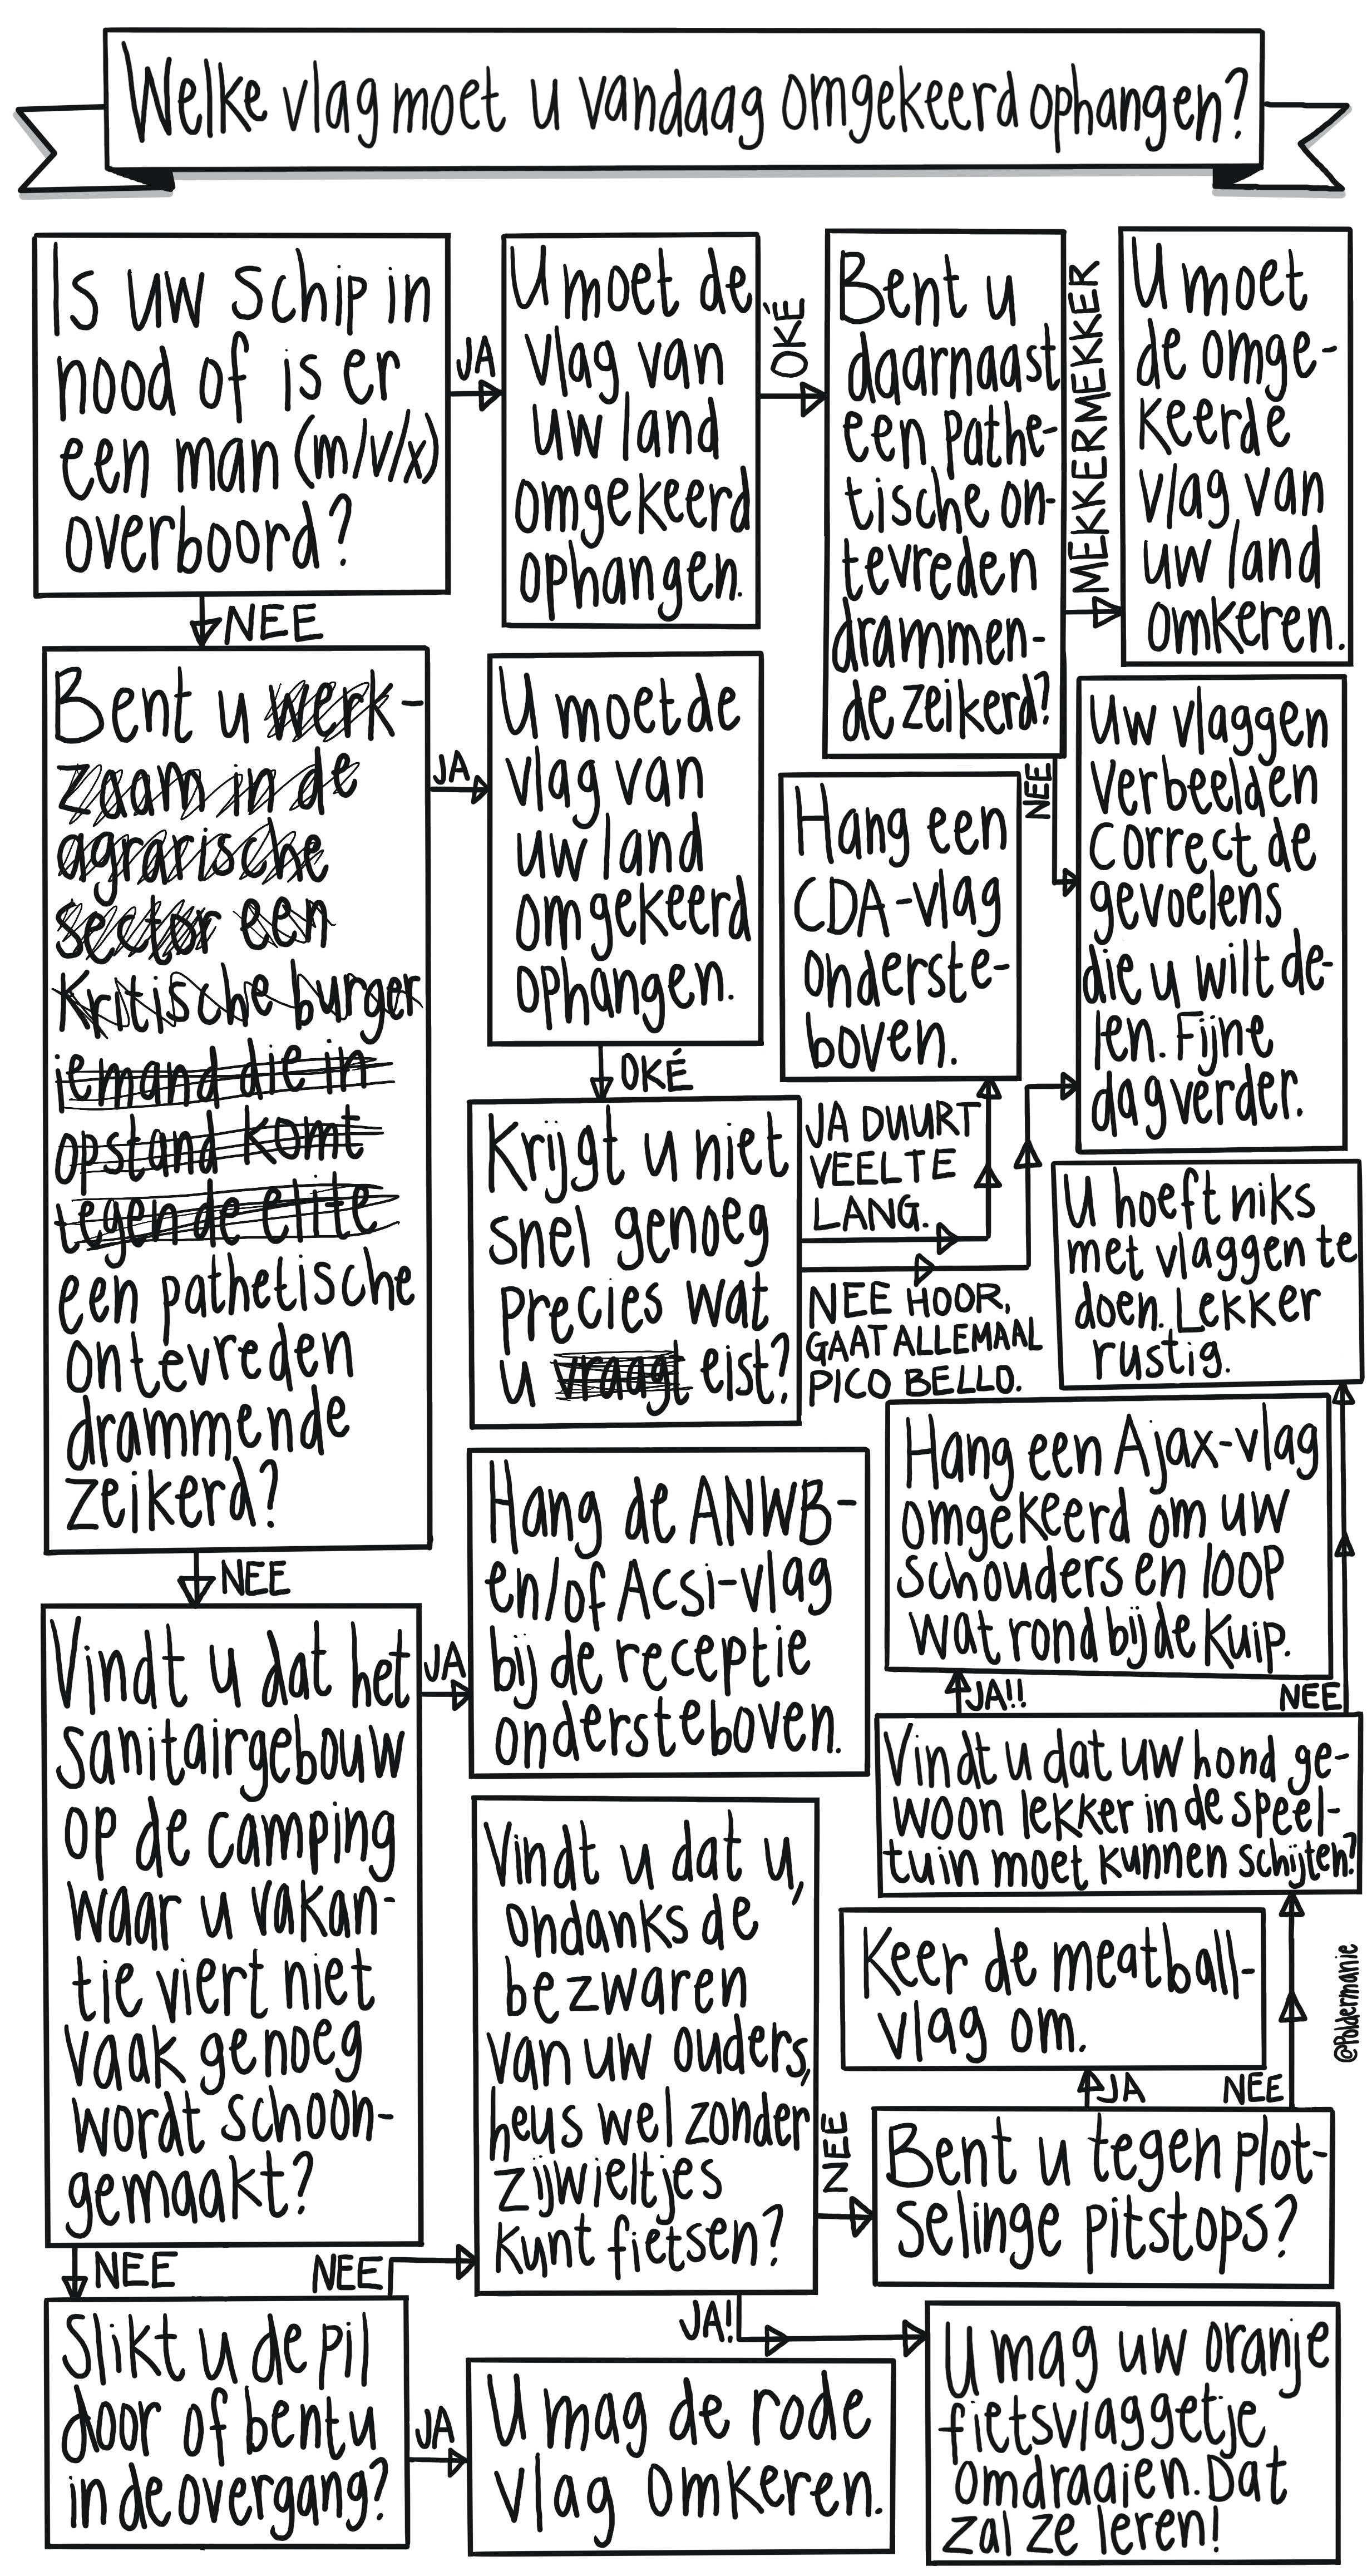 Welke vlag moet u vandaag omgekeerd ophangen?
Is uw schip in
nood of is er
een man (m/v/x)
overboord?
JA
U moet de
vlag van
uw land
omgekeerd
ophangen.
OKÉ
Bent u
daarnaast
een pathe-
tische on-
tevreden
drammen-
de zeikerd?
MEKKERMEKKER
U moet
de omge-
keerde
vlag van
uw land
omkeren.
NEE
Bent u werk-
zaam in de
agrarische
sector een
kritische burger
iemand die in
opstand komt
tegen de elite
een pathetische
ontevreden
drammende
zeikerd?
JA
U moet de
vlag van
uw land
omgekeerd
ophangen.
OKÉ
Krijgt u niet
snel genoeg
precies wat
u vraagt eist?
JA DUURT
VEEL TE
LANG.
Hang een
CDA-vlag
onderste-
boven.
NEE HOOR,
GAAT ALLEMAAL
PICO BELLO.
NEE
Uw vlaggen
verbeelden
correct de
gevoelens
die u wilt de-
len. Fijne
dag verder.
U hoeft niks
met vlaggen te
doen. Lekker
rustig.
NEE
Vindt u dat het
sanitairgebouw
op de camping
waar u vakan-
tie viert niet
vaak genoeg
wordt schoon-
gemaakt?
JA
Hang de ANWB-
en/of Acsi-vlag
bij de receptie
ondersteboven.
Hang een Ajax-vlag
omgekeerd om uw
schouders en loop
wat rond bij de Kuip.
JA!!
NEE
Vindt u dat uw hond ge-
woon lekker in de speel-
tuin moet kunnen schijten?
Keer de meatball-
vlag om.
JA
NEE
Bent u tegen plot-
selinge pitstops?
NEE
Vindt u dat u,
ondanks de
bezwaren
van uw ouders,
heus wel zonder
zijwieltjes
kunt fietsen?
JA!
U mag uw oranje
fietsvlaggetje
omdraaien. Dat
zal ze leren!
NEE
NEE
Slikt u de pil
door of bent u
in de overgang?
JA
U mag de rode
vlag omkeren.
@Poldermanie